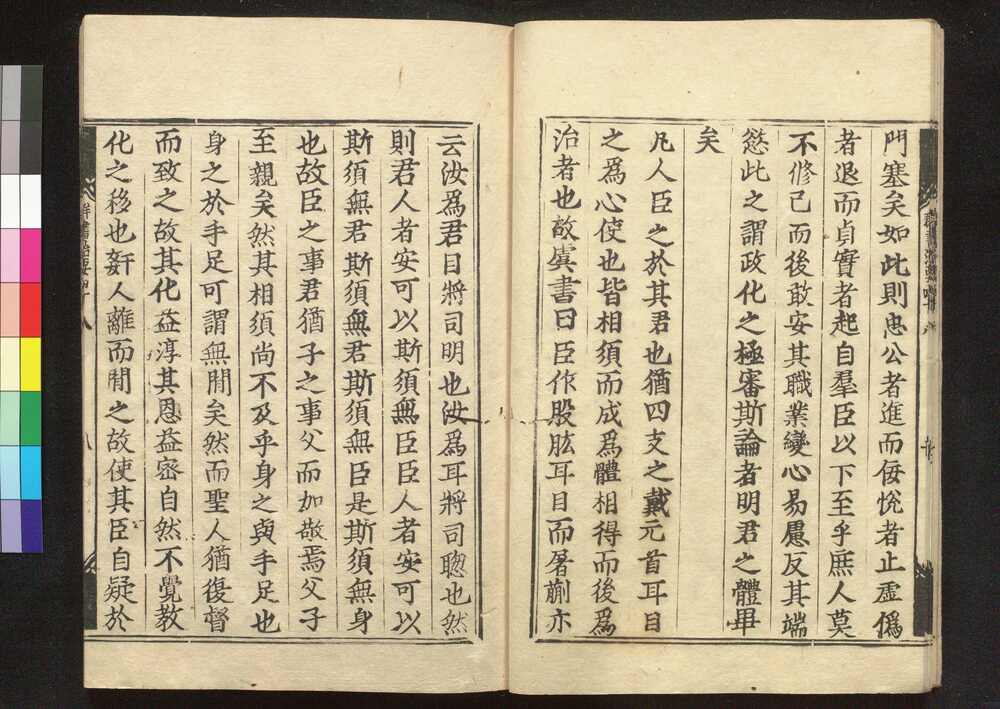 門塞矣如此則忠公者進而佞恱者止虛僞
者退而貞實者起自羣臣以下至乎庶人莫
不修己而後敢安其職業變心易慮反其端
慤此之謂政化之極審斯論者明君之體畢
矣
凡人臣之於其君也猶四支之戴元首耳目
之爲心使也皆相須而成爲體相得而後爲
治者也故虞書曰臣作股肱耳目而屠蒯亦
云汝爲君目將司明也汝爲耳將司聦也然
則君人者安可以斯須無臣臣人者安可以
斯須無君斯須無君斯須無臣是斯須無身
也故臣之事君猶子之事父而加敬焉父子
至親矣然其相須尚不及乎身之與手足也
身之於手足可謂無閒矣然而聖人猶復督
而致之故其化益淳其恩益密自然不覺教
化之移也姧人離而閒之故使其臣自疑於
群書治要四十八
八